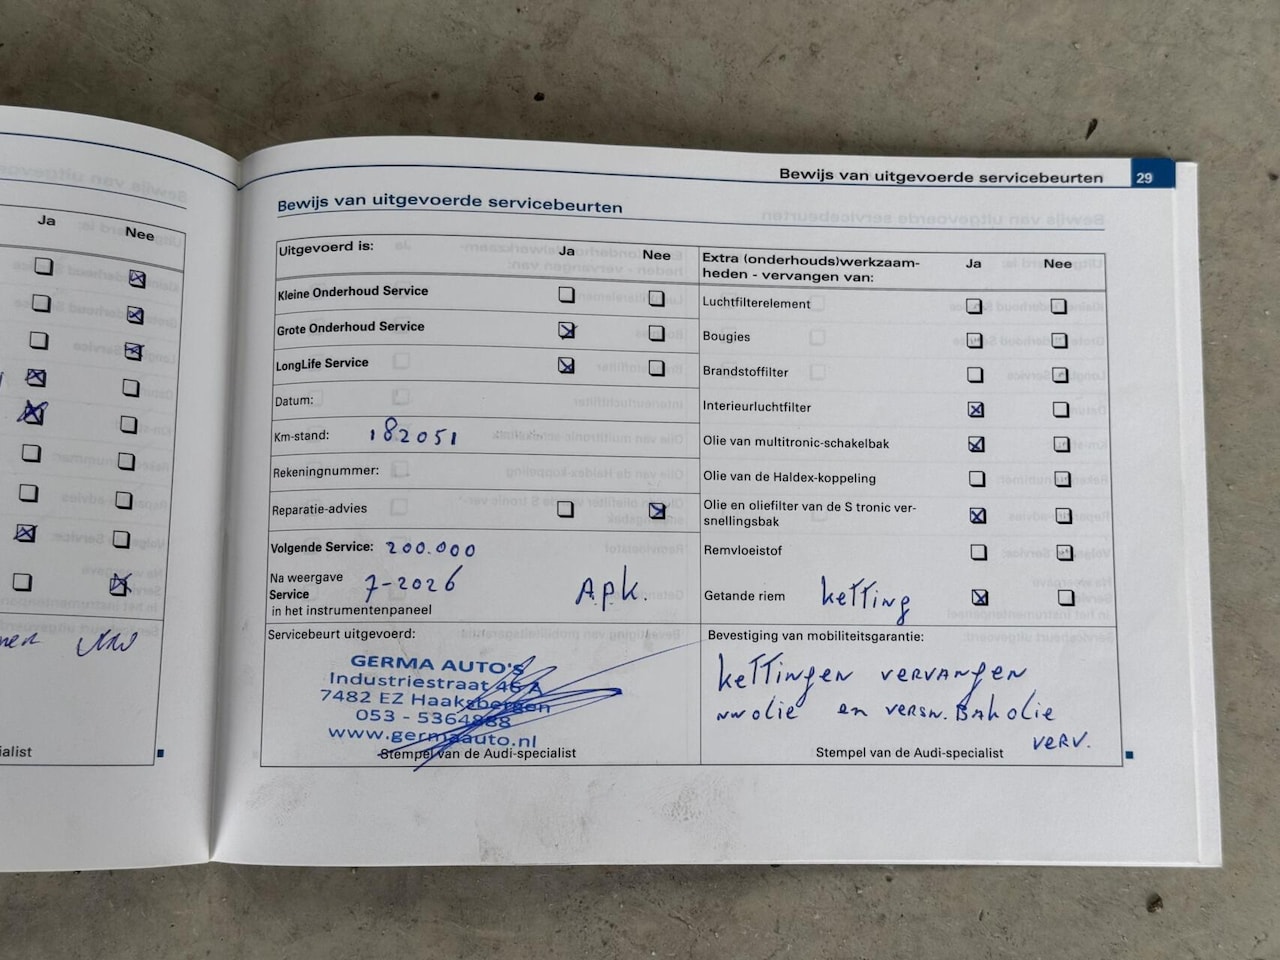 Ja Nee
alist
Bewijs van uitgevoerde servicebeurten 29
Bewijs van uitgevoerde servicebeurten
Uitgevoerd is: Ja Nee
Kleine Onderhoud Service
Grote Onderhoud Service
LongLife Service
Datum:
Km-stand: 182051
Rekeningnummer:
Reparatie-advies
Volgende Service: 200.000
Na weergave
Service
in het instrumentenpaneel
7-2026 A.p.k.
Servicebeurt uitgevoerd:
GERMA AUTO'S
Industriestraat 46 A
7482 EZ Haaksbergen
053 - 5364888
www.germaauto.nl
Stempel van de Audi-specialist
Extra (onderhouds)werkzaam-
heden - vervangen van: Ja Nee
Luchtfilterelement
Bougies
Brandstoffilter
Interieurluchtfilter
Olie van multitronic-schakelbak
Olie van de Haldex-koppeling
Olie en oliefilter van de S tronic ver-
snellingsbak
Remvloeistof
Getande riem ketting
Bevestiging van mobiliteitsgarantie:
kettingen vervangen
olie en versn. Bak olie
verv.
Stempel van de Audi-specialist